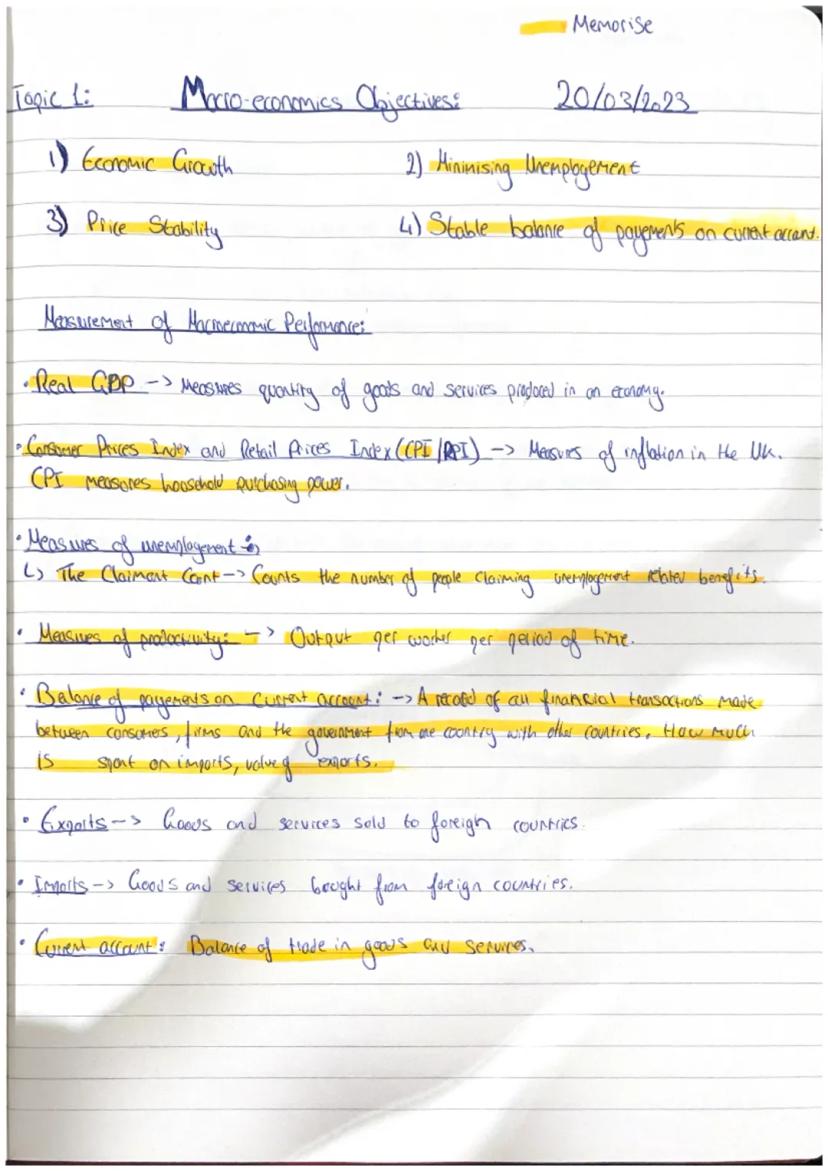 Memorise
Topic 1: Macro-economics Objectives: 20/03/2023
1) Economic Growth 2) Minimising Unemployement
3) Price Stability 4) Stable balance of payements on current account.
Measurement of Macroeconomic Performance:
• Real GDP -> Measures quantity of goods and services produced in an economy.
• Consumer Prices Index and Retail Prices Index (CPI/RPI) -> Measures of inflation in the UK.
CPI measures household purchasing power.
• Measures of unemployement :
↳ The Claimant Count -> Counts the number of people claiming unemployement related benefits.
• Measures of productivity: -> Output per worker per period of time.
• Balance of payements on current account: -> A record of all financial transactions made
between consumers, firms and the government from one country with other countries. How much
is spent on imports, value of exports.
• Exports -> Goods and services sold to foreign countries.
• Imports -> Goods and services bought from foreign countries.
• Current account: Balance of trade in goods and services.